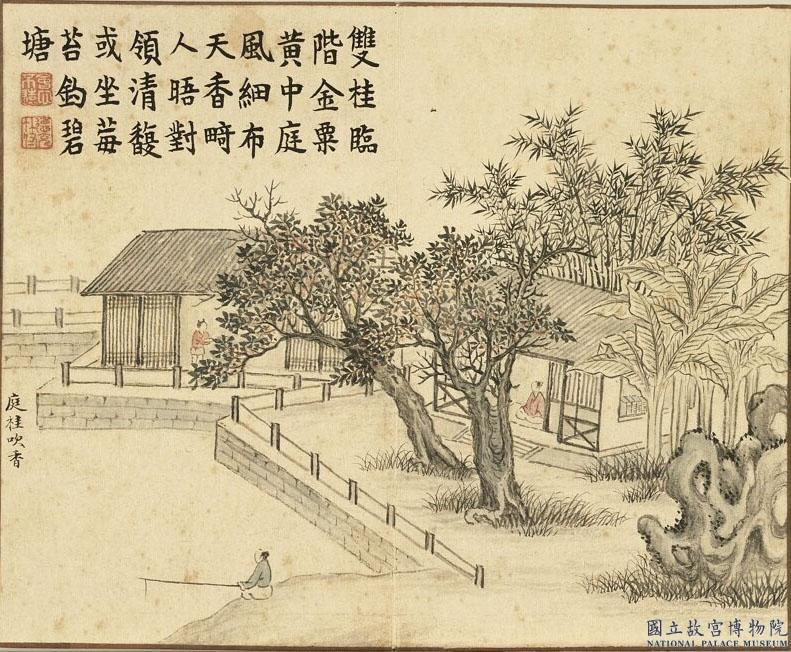 雙桂臨
階金粟
黃中庭
風細布
天香時
人晤對
領清馥
或坐莓
苔釣碧
塘
庭桂吹香
國立故宮博物院
NATIONAL PALACE MUSEUM